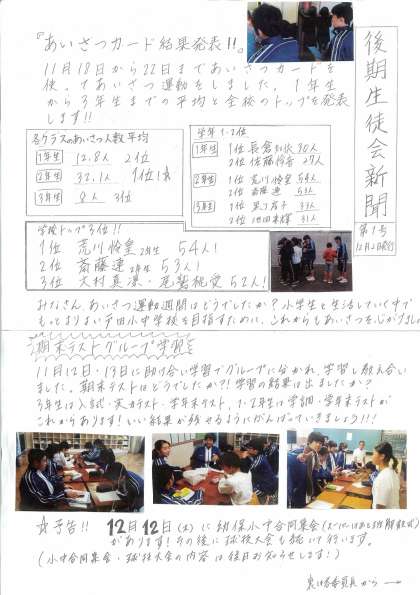 『あいさつカード結果発表!!』
11月18日から22日まであいさつカードを
使ってあいさつ運動をしました。1年生
から3年生までの平均と全校のトップを発表
します!!
後期生徒会新聞
第1号
各クラスのあいさつ人数平均
1年生 12.8人 2位
2年生 32.1人 1位!!
3年生 8人 3位
学年1~2位
1年生 1位 長倉 30人
2位 佐藤 27人
2年生 1位 荒川怜皇 54人
2位 斎藤連 53人
3年生 1位
2位 31人
学校トップ3位!!
1位 荒川怜皇2年生 54人!
2位 斎藤連2年生 53人!
3位 大村真凛・尾﨑桃愛 52人!
みなさん、あいさつ運動週間はどうでしたか?小学生と生活していく中で
もっとよりよい戸田小中学校を目指すために、これからもあいさつを心がけましょう
期末テストグループ学習
11月12日・13日に助け合い学習でグループに分かれ、学習し教え合い
ました。期末テストはどうでしたか?!学習の結果は出ましたか?
3年生は入試・実力テスト・学年末テスト、1・2年生は学調・学年末テストが
これからあります!いい結果が残せるようにがんばっていきましょう!!!
☆予告!! 12月12日(木)に幼保小中合同集会
があります!その後に球技大会も続いて行います。
(小中合同集会・球技大会の内容は後日お知らせします!)